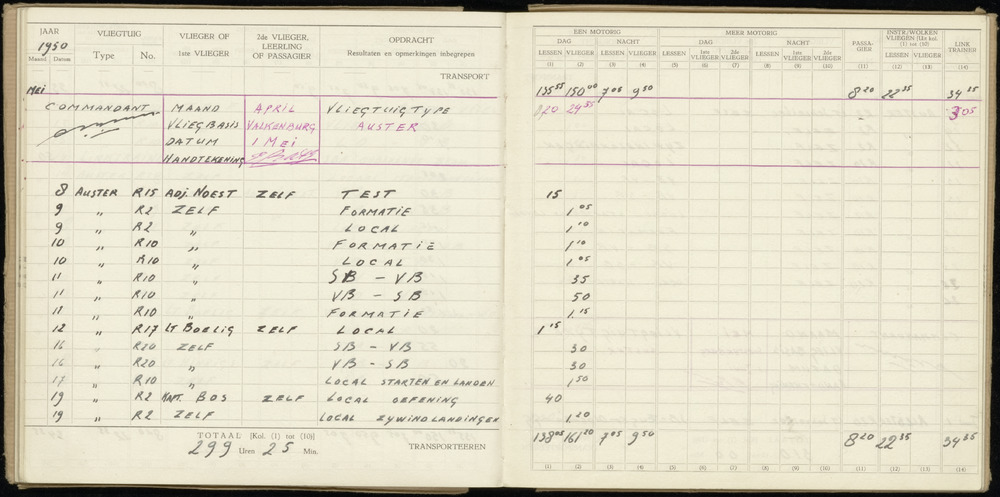 JAAR VLIEGTUIG VLIEGER OF 2de VLIEGER, OPDRACHT
1950 1ste VLIEGER LEERLING Resultaten en opmerkingen inbegrepen
Maand Datum Type No. OF PASSAGIER
TRANSPORT
MEI
COMMANDANT MAAND APRIL VLIEGTUIGTYPE
VLIEGBASIS VALKENBURG AUSTER
DATUM 1 MEI
HANDTEKENING
8 AUSTER R15 ADJ. NOEST ZELF TEST
9 " R2 ZELF FORMATIE
9 " R2 " LOCAL
10 " R10 " FORMATIE
10 " R10 " LOCAL
11 " R10 " SB - VB
11 " R10 " VB - SB
11 " R10 " FORMATIE
12 " R17 LT ZELF LOCAL
16 " R20 ZELF SB - VB
16 " R20 " VB - SB
17 " R10 " LOCAL STARTEN EN LANDEN
19 " R2 KAPT. BOS ZELF LOCAL OEFENING
19 " R2 ZELF LOCAL ZYWINDLANDINGEN
TOTAAL [Kol. (1) tot (10)]
299 Uren 25 Min. TRANSPORTEEREN
EEN MOTORIG MEER MOTORIG PASSA-GIER INSTR./WOLKEN VLIEGEN (Uit kol. (1) tot (10)) LINK TRAINER
DAG NACHT DAG NACHT
LESSEN VLIEGER LESSEN VLIEGER LESSEN 1ste VLIEGER 2de VLIEGER LESSEN 1ste VLIEGER 2de VLIEGER LESSEN VLIEGER
(1) (2) (3) (4) (5) (6) (7) (8) (9) (10) (11) (12) (13) (14)
135 55 150 00 7 05 9 50 8 20 22 35 34 35
24 55 3 05
15
1 05
1 10
1 10
1 05
35
50
1 15
1 15
30
30
1 50
40
1 20
138 05 161 20 7 05 9 50 8 20 22 35 34 35
(1) (2) (3) (4) (5) (6) (7) (8) (9) (10) (11) (12) (13) (14)